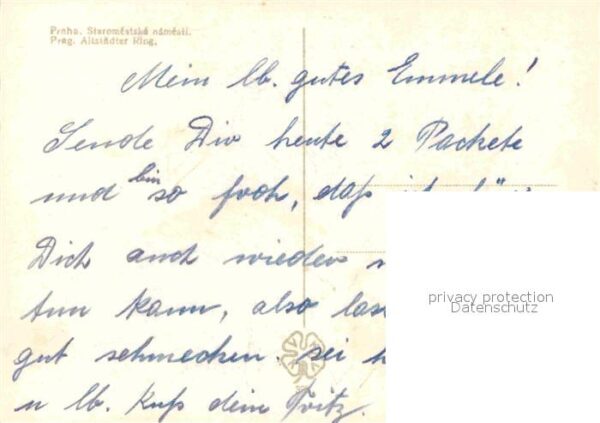 Praha. Staroměstské náměstí.
Prag. Altstädter Ring.
Mein lb. gutes Emmele!
Sende Dir heute 2 Packete
und bin so froh, daß ich
Dich auch wieder
tun kann, also
gut schmecken. sei
u lb. Kuß dein Fritz.
privacy protection
Datenschutz